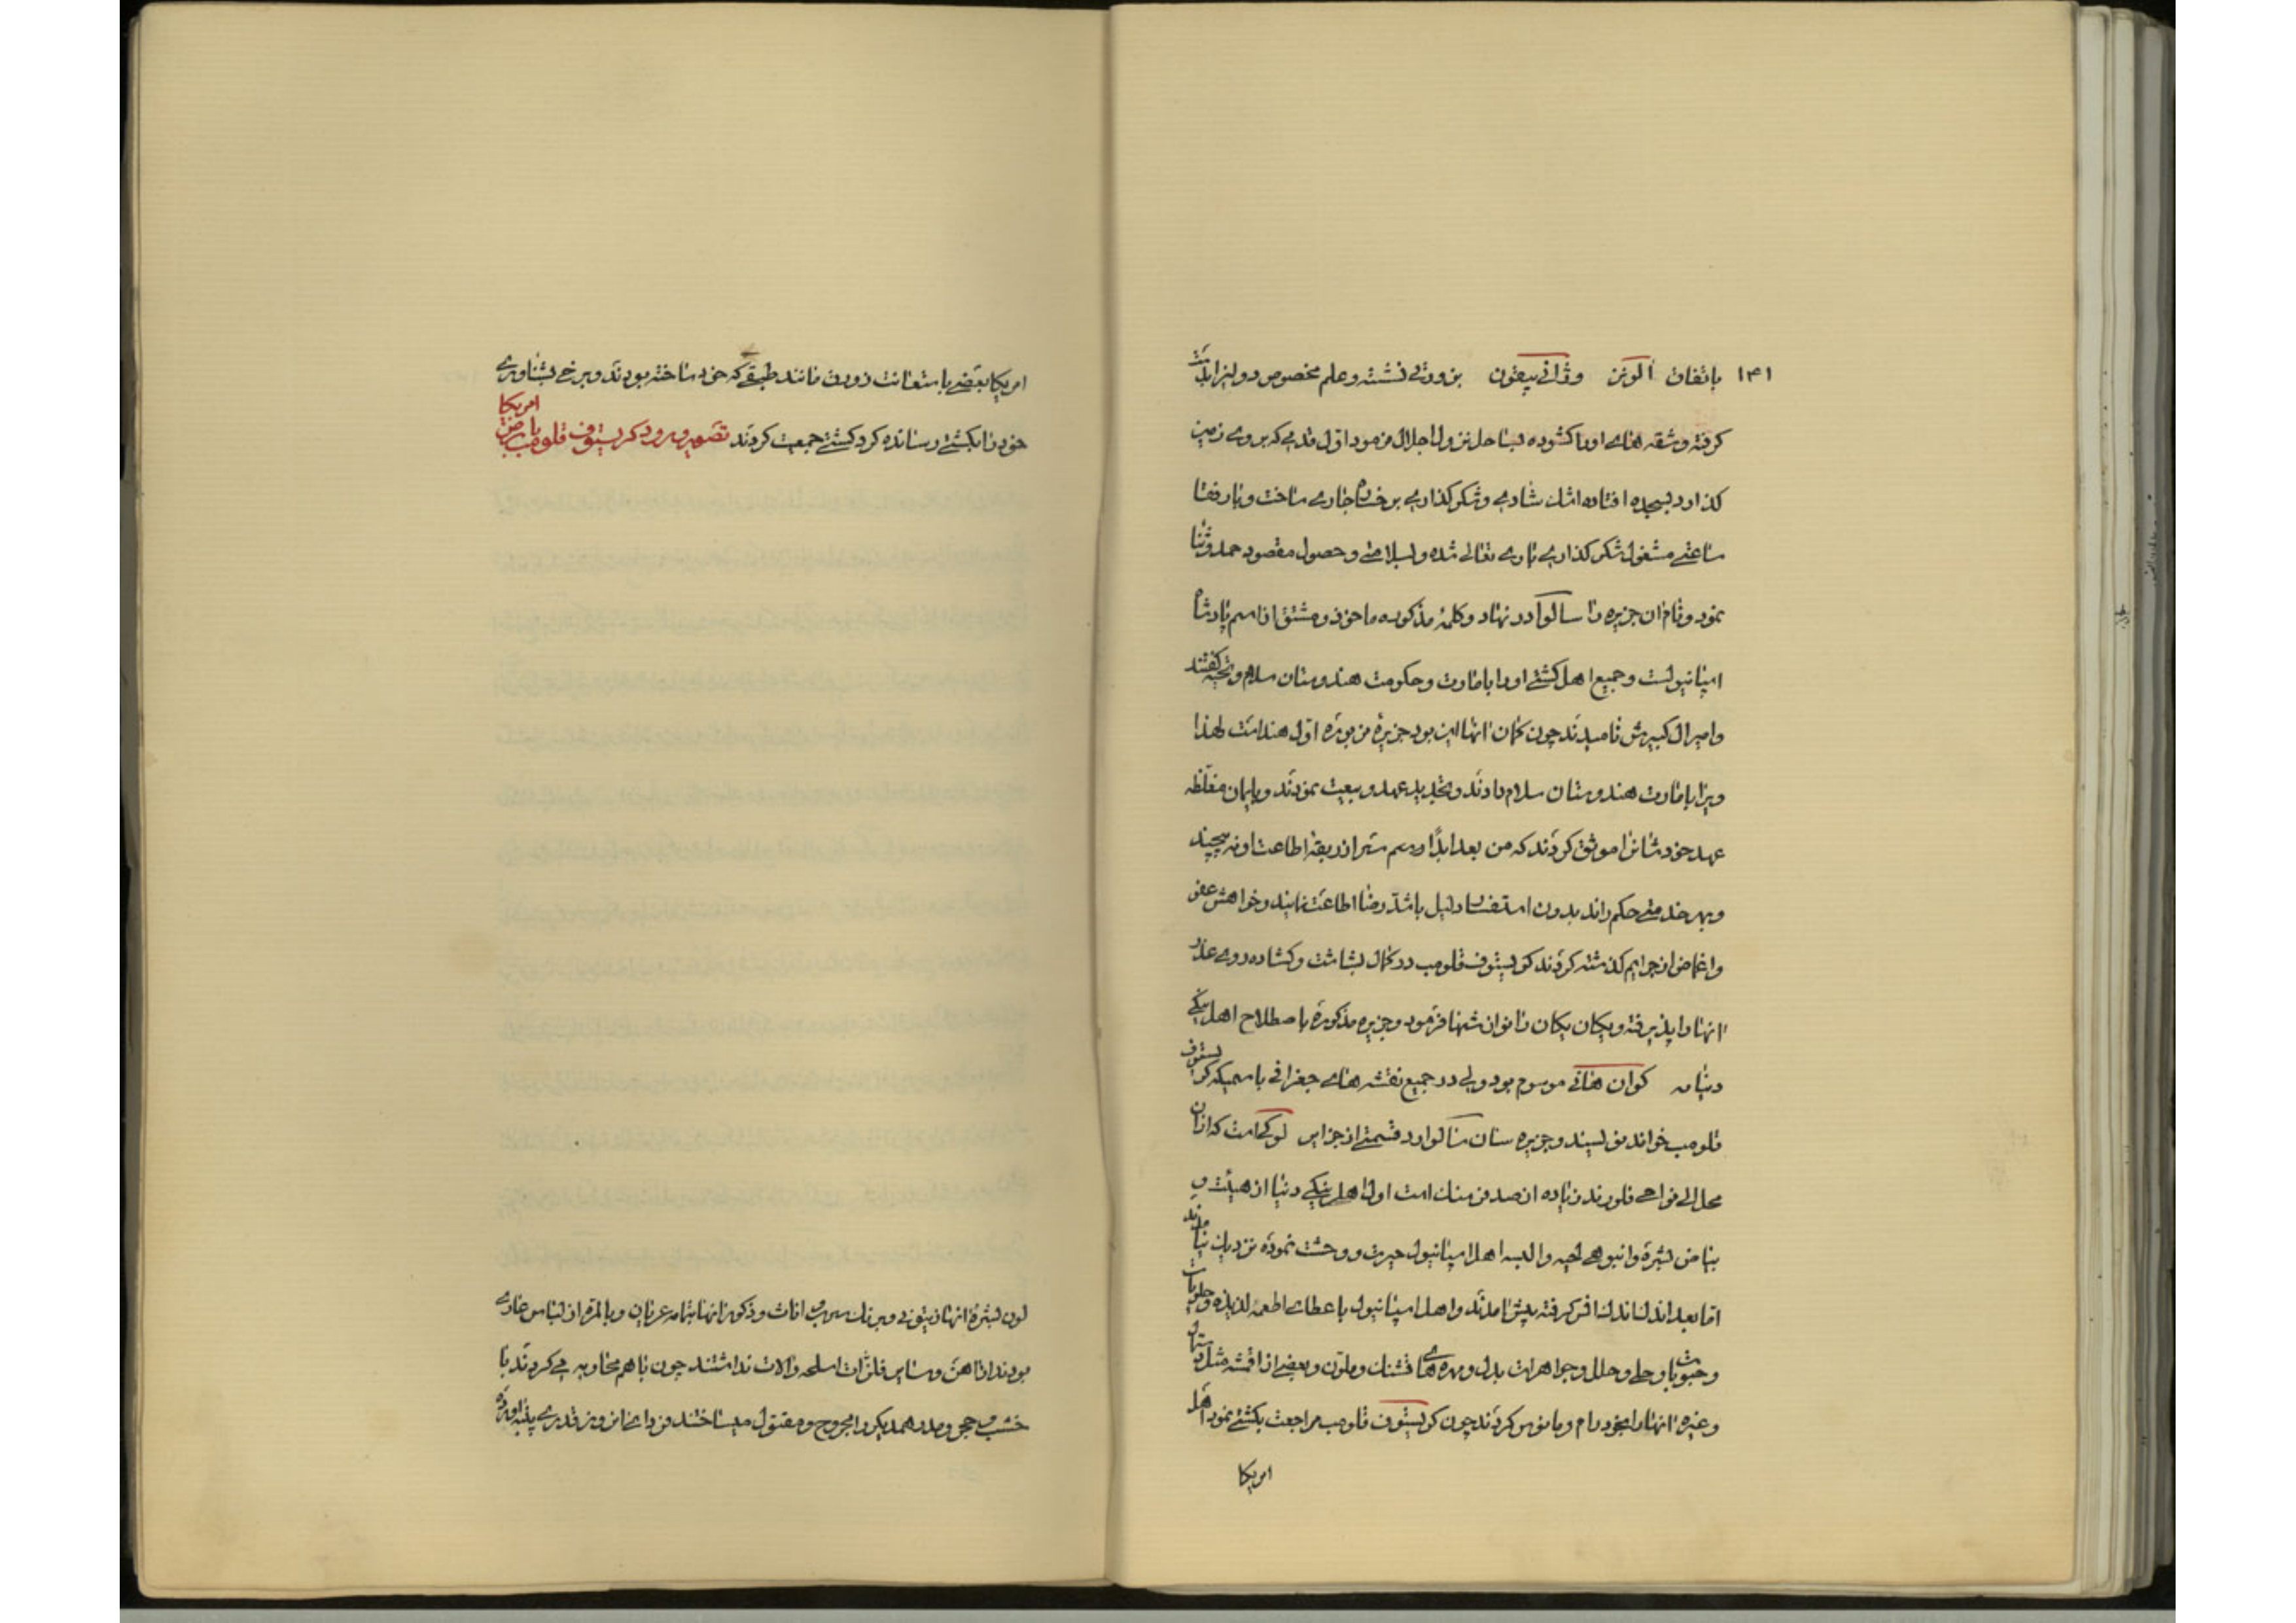 ۱۳۱ باتفاق الونز وژانی پیقون بزورقی نشسته و علم مخصوص دو لیزابت
گرفته و شقه های او را کشوده بساحل نزول اجلال فرمود اول قدمی که بروی زمین
گذارد بسجده افتاده اشک شادی و شکر گذاری بر خساره جاری ساخت و با رفقا
ساعتی مشغول شکر گذاری باری تعالی شده و بسلامتی و حصول مقصود حمد و ثنا
نمود و نام ان جزیره را سالوادر نهاد و کلمهٔ مذکوره ماخوذ و مشتق از اسم پادشاه
اسپانیولست و جمیع اهل کشتی او را بامارت و حکومت هندوستان سلام و تحیه گفتند
و امیرال کبیرش نامیدند چون گمان انها این بود جزیرهٔ مزبوره اول هند است لهذا
ویرا بامارت هندوستان سلام دادند و تجدید عهد و بیعت نمودند و بایمان مغلظه
عهد خودشانرا موثق کردند که من بعد ابدًا و رسم سر از ربقه اطاعت او نه پیچند
و بهر خدمتی حکم راند بدون استفسار دلیل باشد رضا اطاعت نمایند و خواهش عفو
و اغماض از جرایم گذشته کردند کریستوف قلومب در کمال بشاشت و گشاده روی عذر
انها را پذیرفته و یکان یکان را نوازشها فرمود و جزیره مذکوره باصطلاح اهل ینگی
دنیا به کوان هانی موسوم بود ولی در جمیع نقشه های جغرافی باسمیکه کریستوف
قلومب خوانده می نویسند و جزیره سان سالوادر قسمتی از جزایر لوکجاست که از ان
محل الی نواحی فلورندن زیاده از صد فرسنک است اول اهل ینکی دنیا از هیئت و
بیاض بشره و انبوهی لحیه و البسه اهل اسپانیول حیرت و وحشت نموده نزدیک نیامدند
اما بعد اندک اندک انس گرفته پیش امدند و اهل اسپانیول باعطای اطعمه لذیذه و حلویات
و حبوبات و حلی و حلل و جواهرات بدل و مهره های قشنک و ملون و بعضی از اقمشه مثل دستمال
و غیره انها را بخود رام و مانوس کردند چون کریستوف قلومب مراجعت بکشتی نمود اهل
امریکا
امریکا بعضی باستعانت زورق مانند طبقی که خود ساخته بودند و برخی بشناوری
خود را بکشتی رسانده گرد کشتی جمعیت کردند تصویر ورود کریستوف قلومب بارض امریکا
لون بشرهٔ انها زیتونی و برنک سرب اناث و ذکور انها بتمامه عریان و بالمره از لباس عاری
بودند از اهن و سایر فلزات اسلحه و الات نداشتند چون با هم محاربه می کردند با
خشب و حجر و مدر همدیگر را مجروح و مقتول میساختند مردا نی قدری پنبه اورده